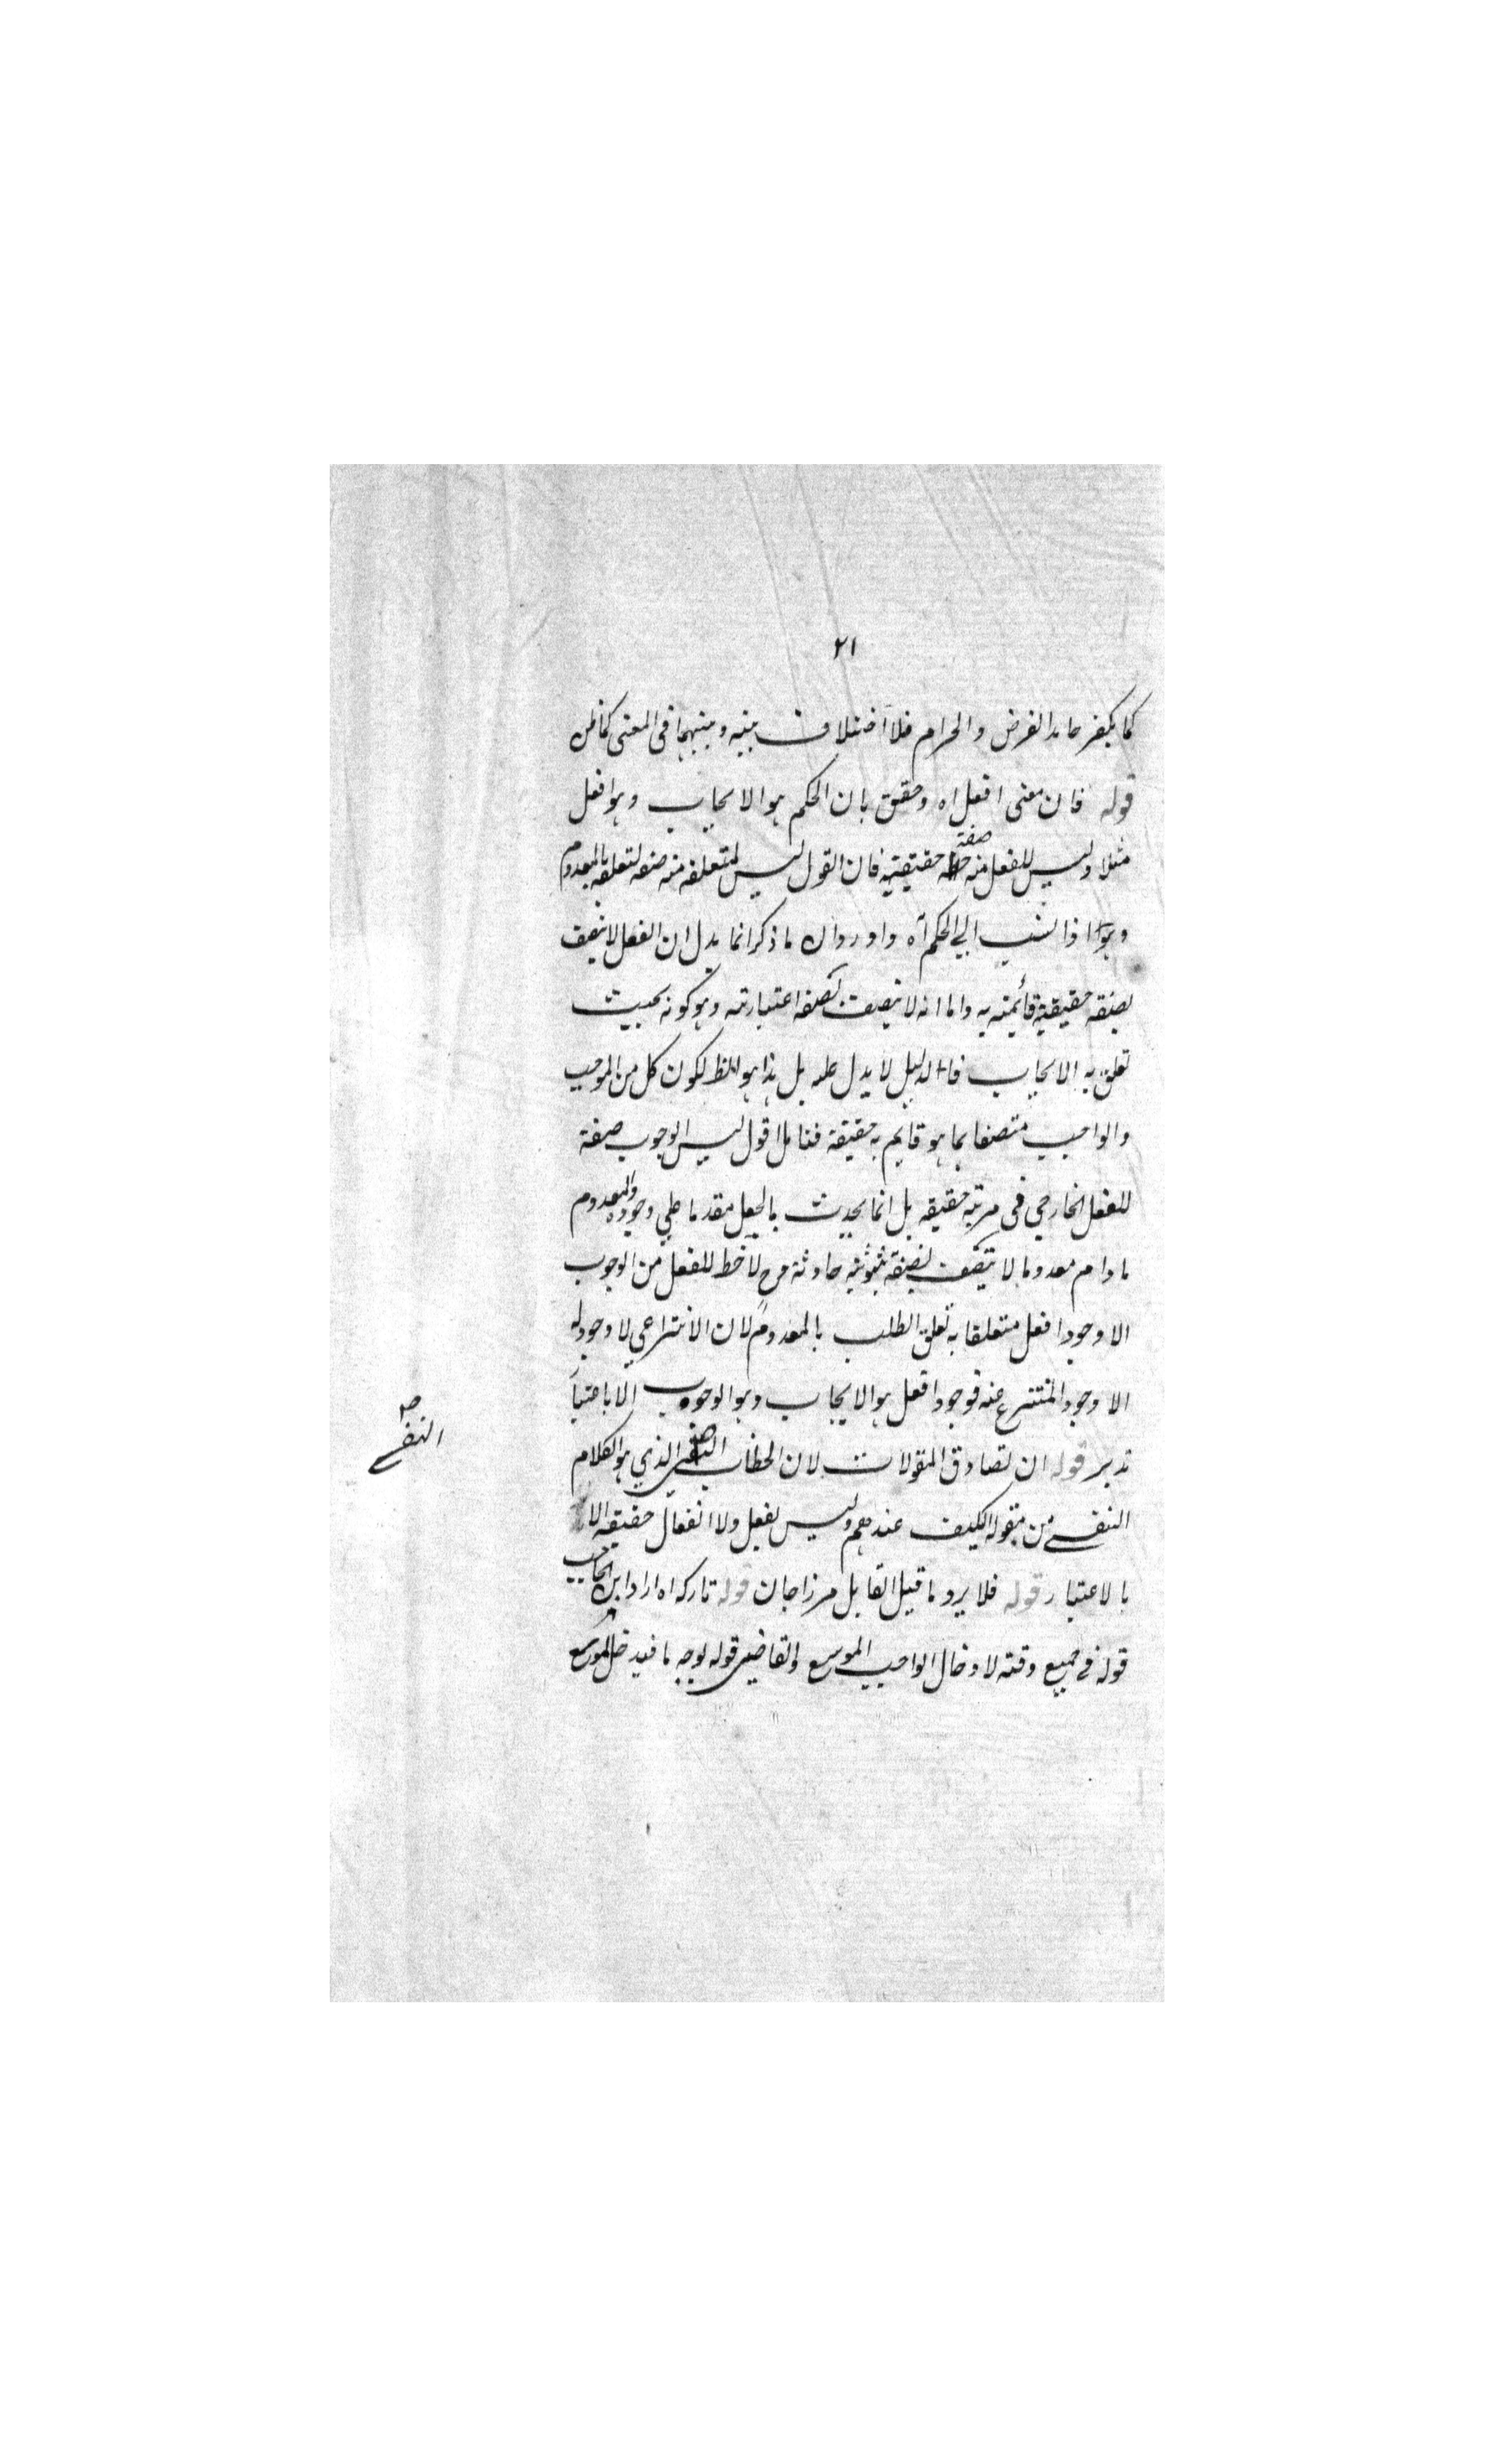 ٢١
كما يكفر جاحد الفرض والحرام فلا اختلاف بينه وبينهما فى المعنى كما ظن
قوله فان معنى افعل اه وحقق بان الحكم هو الايجاب وهو افعل
مثلا وليس للفعل منه صفة حقيقية فان القول ليس لمتعلقه منه صفة لتعلقه بالمعدوم
وهو اذا نسب الي الحكم آه واورد ان ما ذكر انما يدل ان الفعل لا يتصف
بصفة حقيقية قائمة به واما انه لا يتصف بصفة اعتبارية وهو كونه بحيث
تعلق به الايجاب فالدليل لا يدل عليه بل هذا هو الظ لكون كل من الموجب
والواجب متصفا بما هو قايم به حقيقة فتامل اقول ليس الوجوب صفة
للفعل الخارجي فى مرتبة حقيقة بل انما يحدث بالجعل مقدما علي وجوده والمعدوم
ما دام معدوما لا يتصف بصفة ثبوتية حادثة فرح لا حظ للفعل من الوجوب
الا وجود افعل متعلقا به تعلق الطلب بالمعدوم لان الانتزاعي لا وجود له
الا وجود المنتزع عنه فوجود افعل هو الايجاب وهو الوجوب الا باعتبار
تدبر قوله ان تصادق المقولات لان الخطاب النفسي الذي هو الكلام
النفسي
النفسے من مقولة الكيف عندهم وليس بفعل ولا انفعال حقيقة الا
بالاعتبار قوله فلا يرد ما قيل القايل مرزاجان قوله تاركه اه اراد ابن الحاجب
قوله فى جميع وقته لادخال الواجب الموسع والقاضي قوله بوجه ما فيدخل الموسع